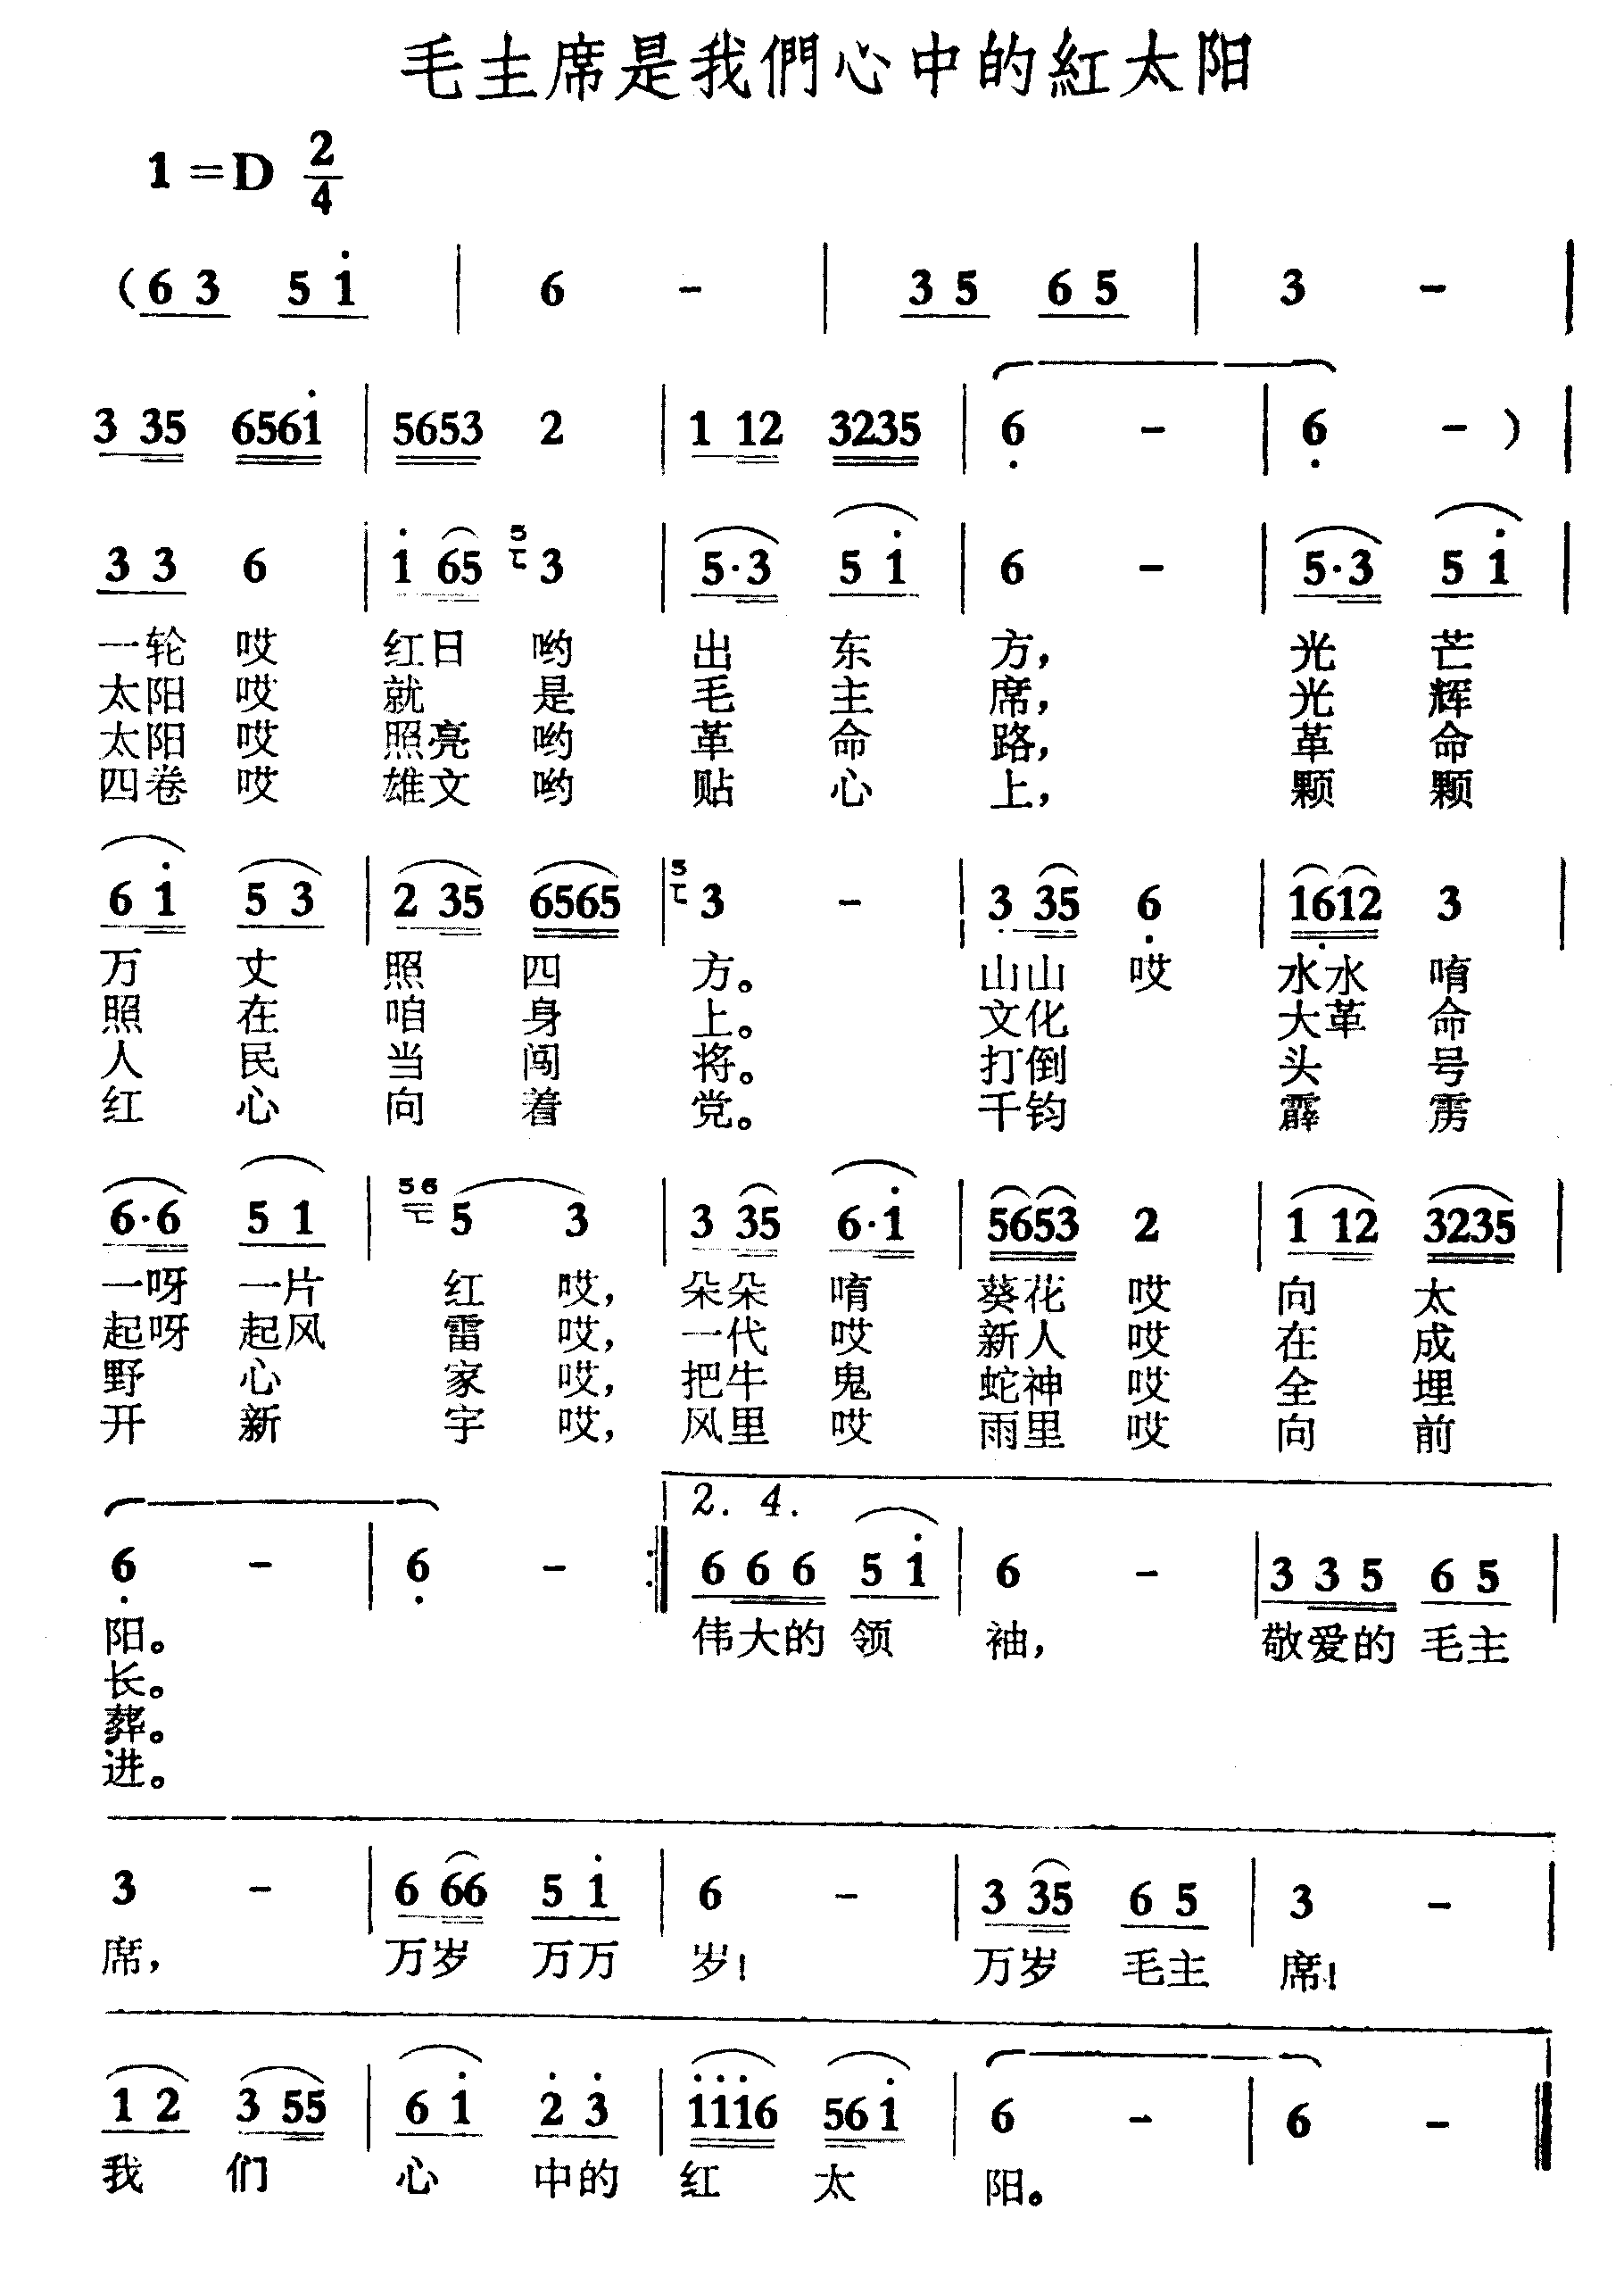 毛主席是我們心中的紅太阳
1=D 2/4
(6 3 5 1̇ | 6 - | 3 5 6 5 | 3 - |
3 35 6561̇ | 5653 2 | 1 12 3235 | 6̣ - | 6̣ - ) |
3 3 6 | 1̇ 65 5 3 | 5·3 5 1̇ | 6 - | 5·3 5 1̇ |
一轮 哎 红日 哟 出 东 方, 光 芒
太阳 哎 就 是 毛 主 席, 光 辉
太阳 哎 照亮 哟 革 命 路, 革 命
四卷 哎 雄文 哟 贴 心 上, 颗 颗
6 1̇ 5 3 | 2 35 6565 | 5 3 - | 3 35 6̣ | 16̣12 3 |
万 丈 照 四 方。 山山 哎 水水 唷
照 在 咱 身 上。 文化 大革 命
人 民 当 闯 将。 打倒 头 号
红 心 向 着 党。 千钧 霹 雳
6·6 5 1 | 56 5 3 | 3 35 6·1̇ | 5653 2 | 1 12 3235 |
一呀 一片 红 哎, 朵朵 唷 葵花 哎 向 太
起呀 起风 雷 哎, 一代 哎 新人 哎 在 成
野 心 家 哎, 把牛 鬼 蛇神 哎 全 埋
开 新 宇 哎, 风里 哎 雨里 哎 向 前
2. 4.
6̣ - | 6̣ - :| 6 6 6 5 1̇ | 6 - | 3 3 5 6 5 |
阳。 伟大的 领 袖, 敬爱的 毛主
长。
葬。
进。
3 - | 6 66 5 1̇ | 6 - | 3 35 6 5 | 3 - |
席, 万岁 万万 岁! 万岁 毛主 席!
1 2 3 55 | 6 1̇ 2̇ 3̇ | 1̇1̇1̇6 56 1̇ | 6 - | 6 - ‖
我 们 心 中的 红 太 阳。